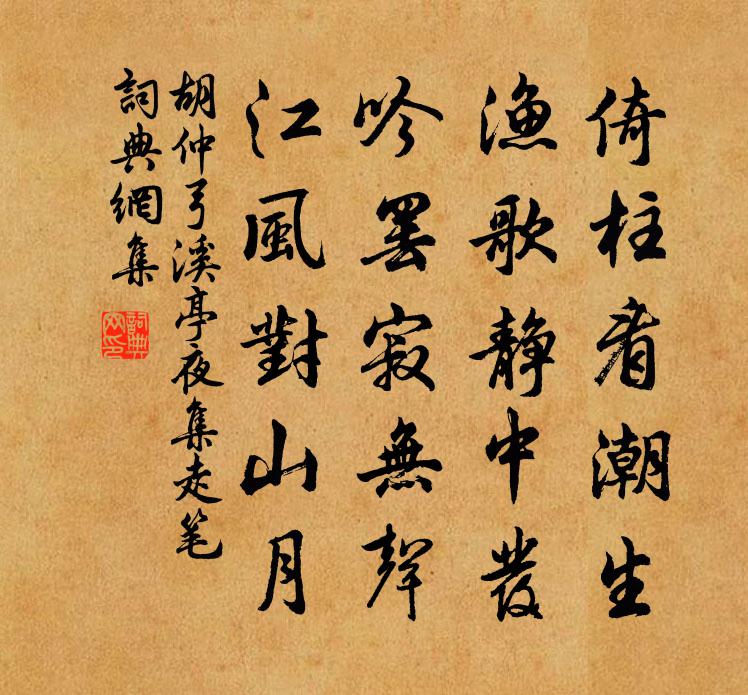 倚柱看潮生
漁歌静中發
吟罢寂無聲
江風對山月
胡仲弓溪亭夜集走笔
詞典網集
詞典
网印